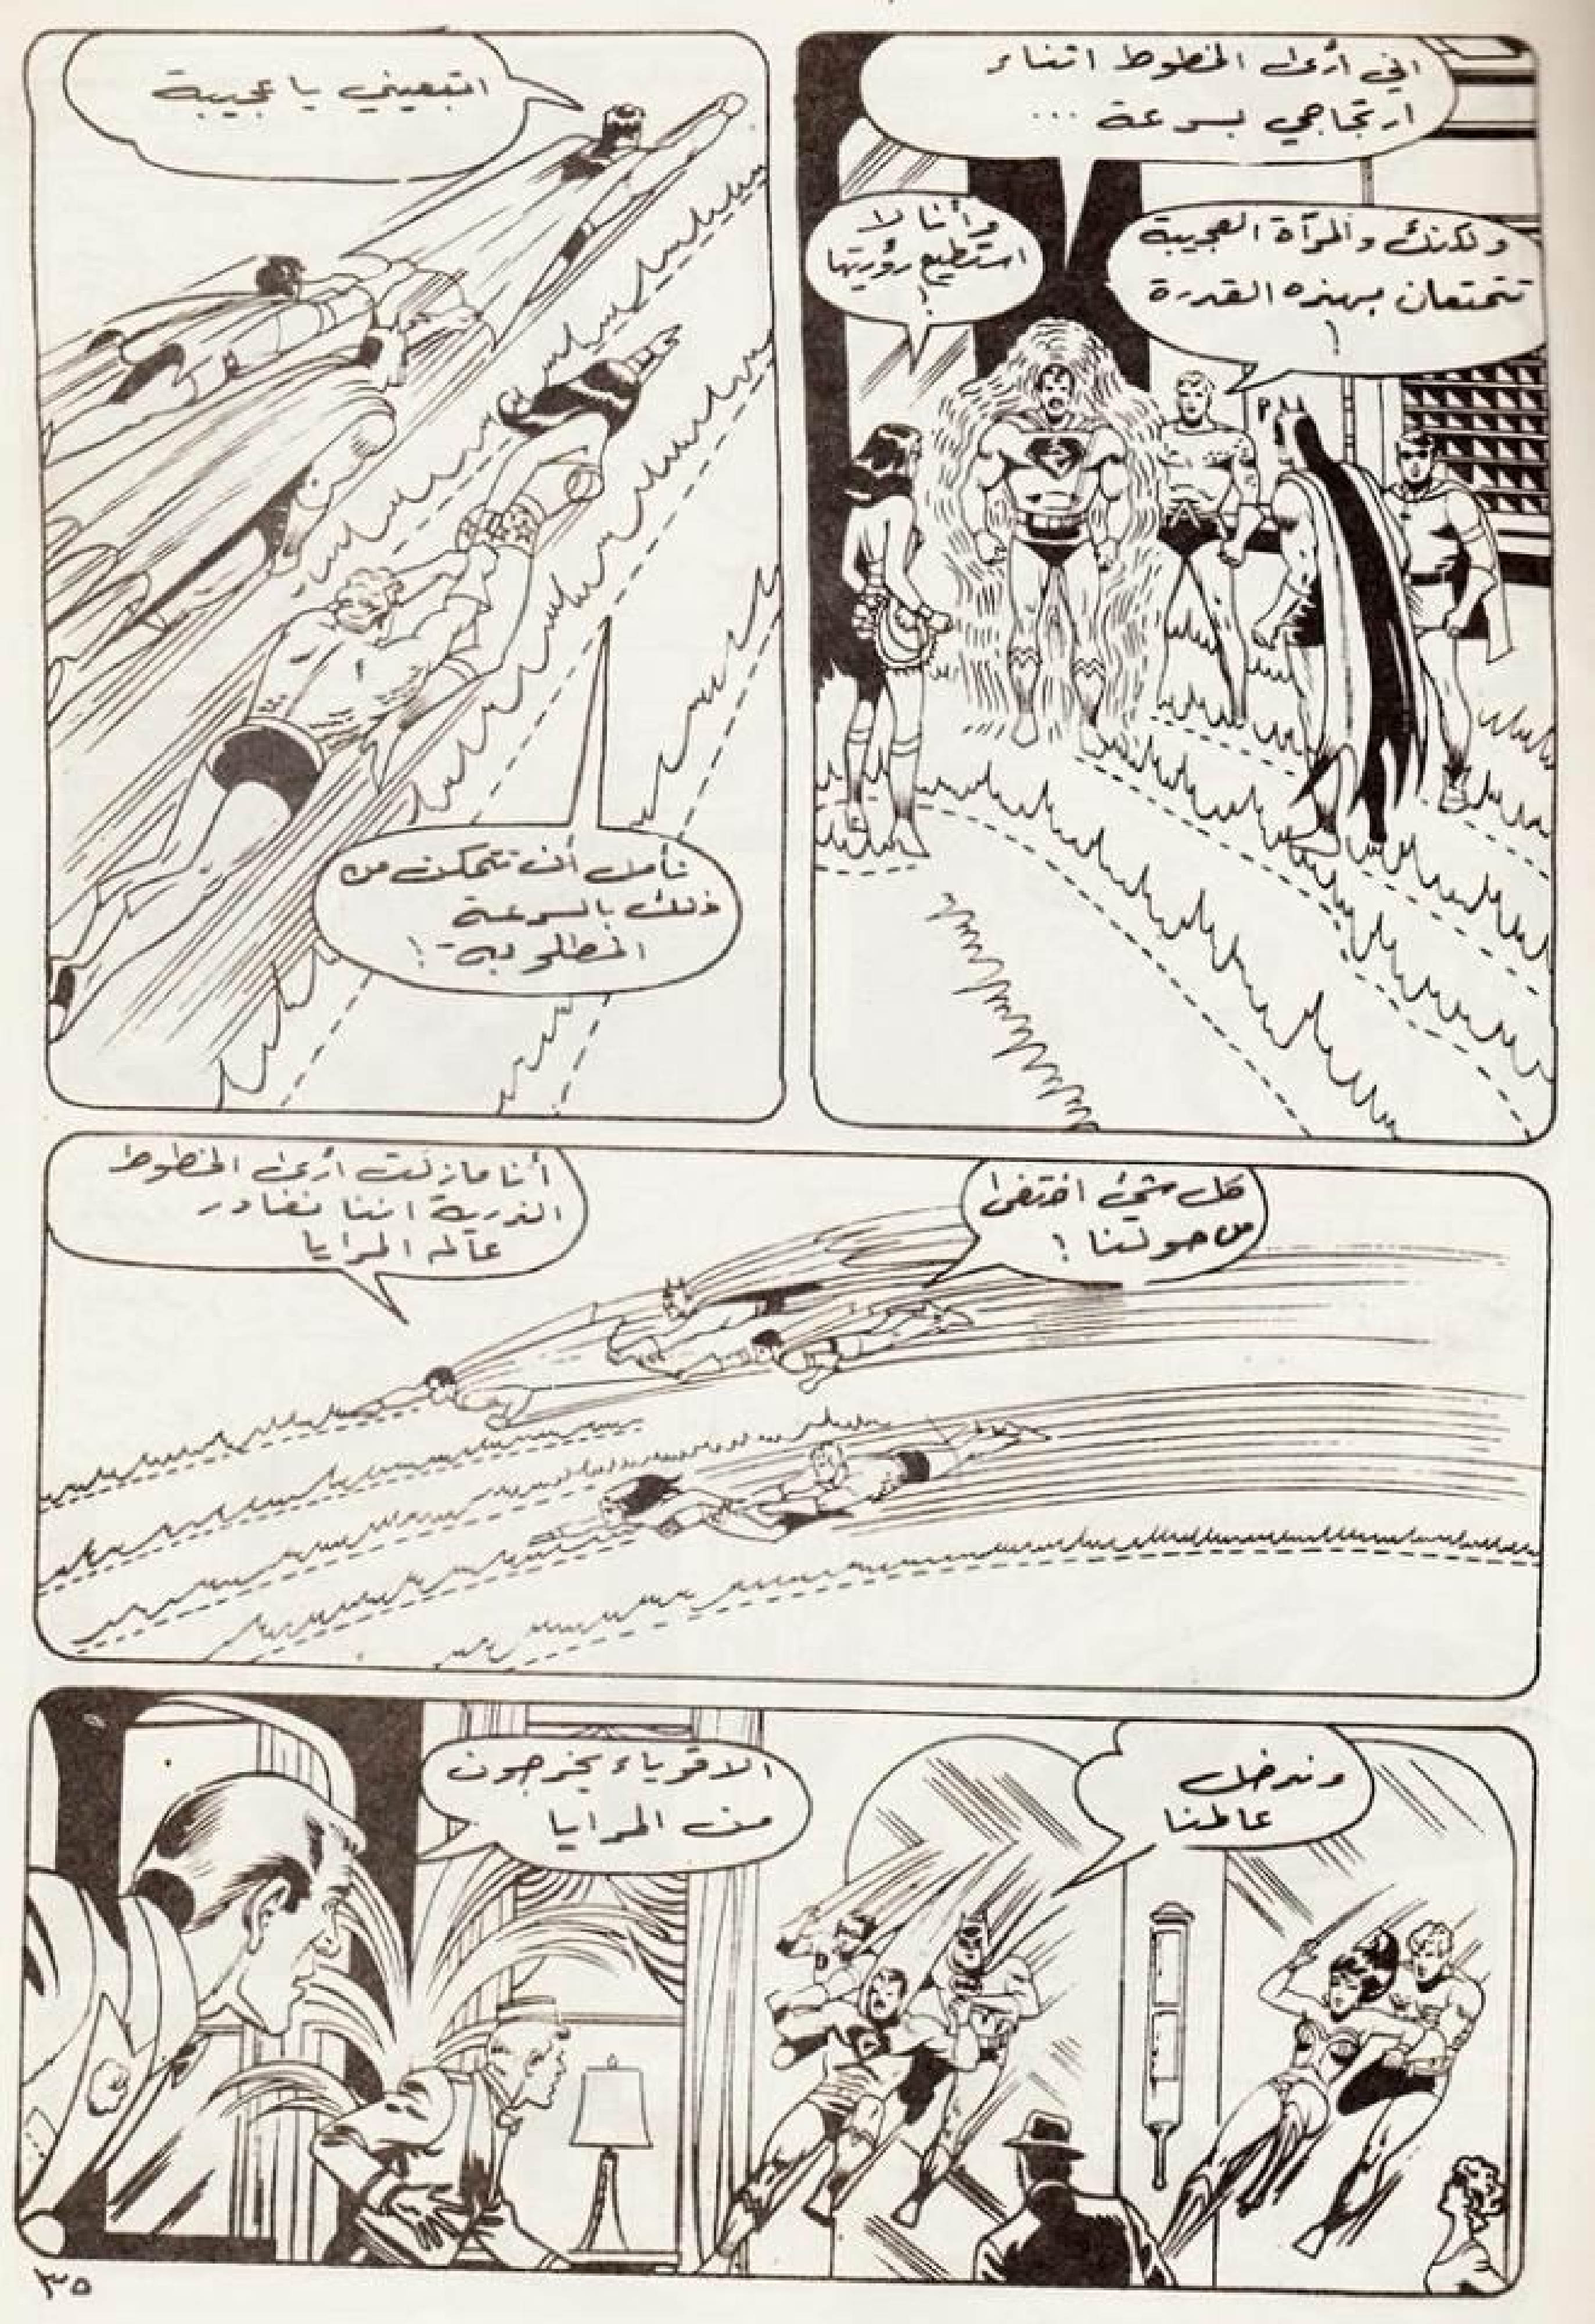 اني أرى الخطوط اثناء
ارتجاجي بسرعة ...
ولكنك والمرآة العجيبة
تتمتعان بهذه القدرة
!
وأنا لا
استطيع رؤيتها
!
اتبعيني يا عجيبة
نأمل أن نتمكن من
ذلك بالسرعة
المطلوبة !
كل شيء اختفى
من حولنا !
أنا مازلت أرى الخطوط
الذرية اننا نغادر
عالم المرايا
وندخل
عالمنا
الاقوياء يخرجون
من المرايا
٣٥